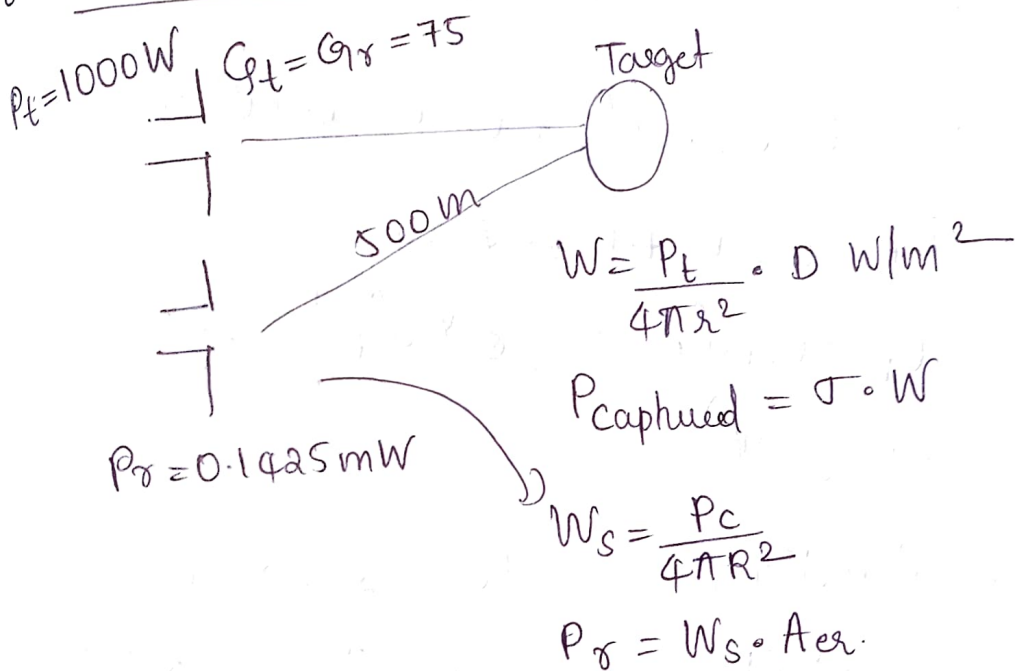 Pt=1000W
Gt=Gr=75
Target
500m
W = Pt/4πr² . D W/m²
Pcaptured = σ.W
Pr=0.1425mW
Ws = Pc/4πR²
Pr = Ws.Aer.